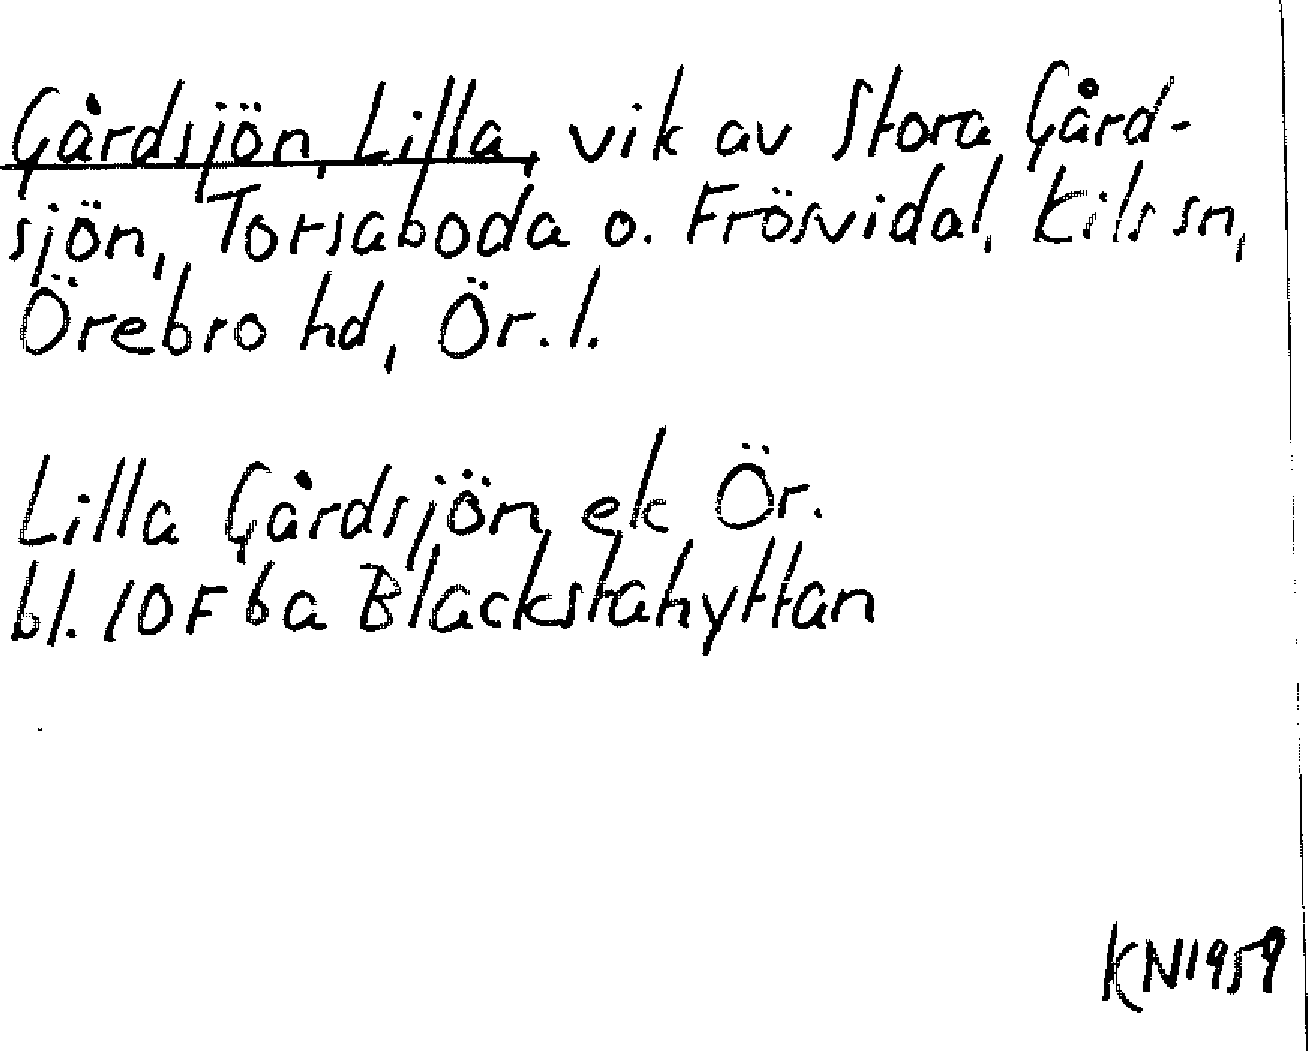 Gårdsjön, Lilla, vik av Stora Gård-
sjön, Torsaboda o. Frösvidal, Kils sn,
Örebro hd, Ör. l.
Lilla Gårdsjön ek Ör.
bl. 10F 6a Blackstahyttan
KN1959